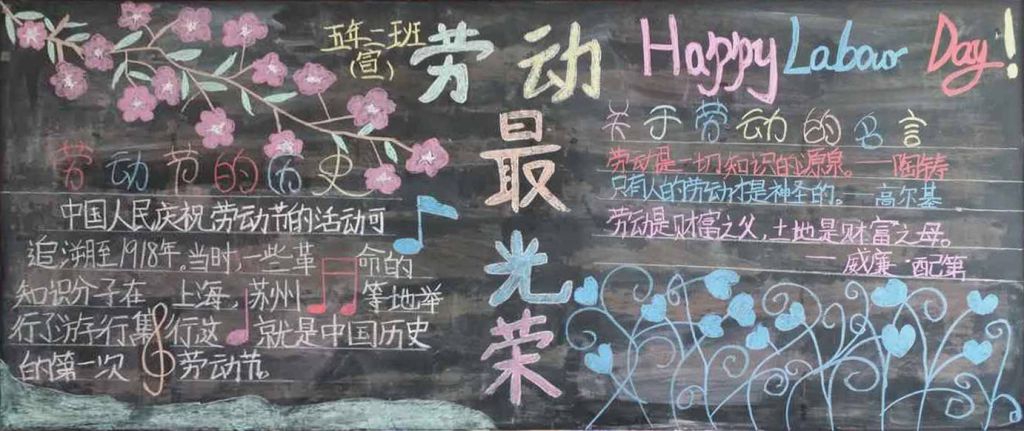 五年二班
(宣)
劳动
最
光
荣
Happy Labour Day!
劳动节的历史
中国人民庆祝劳动节的活动可
追溯至1918年。当时一些革命的
知识分子在上海,苏州等地举
行了游行集行这就是中国历史
的第一次劳动节。
关于劳动的名言
劳动是一切知识的源泉。——陶铸
只有人的劳动才是神圣的。——高尔基
劳动是财富之父,土地是财富之母。
——威廉·配第